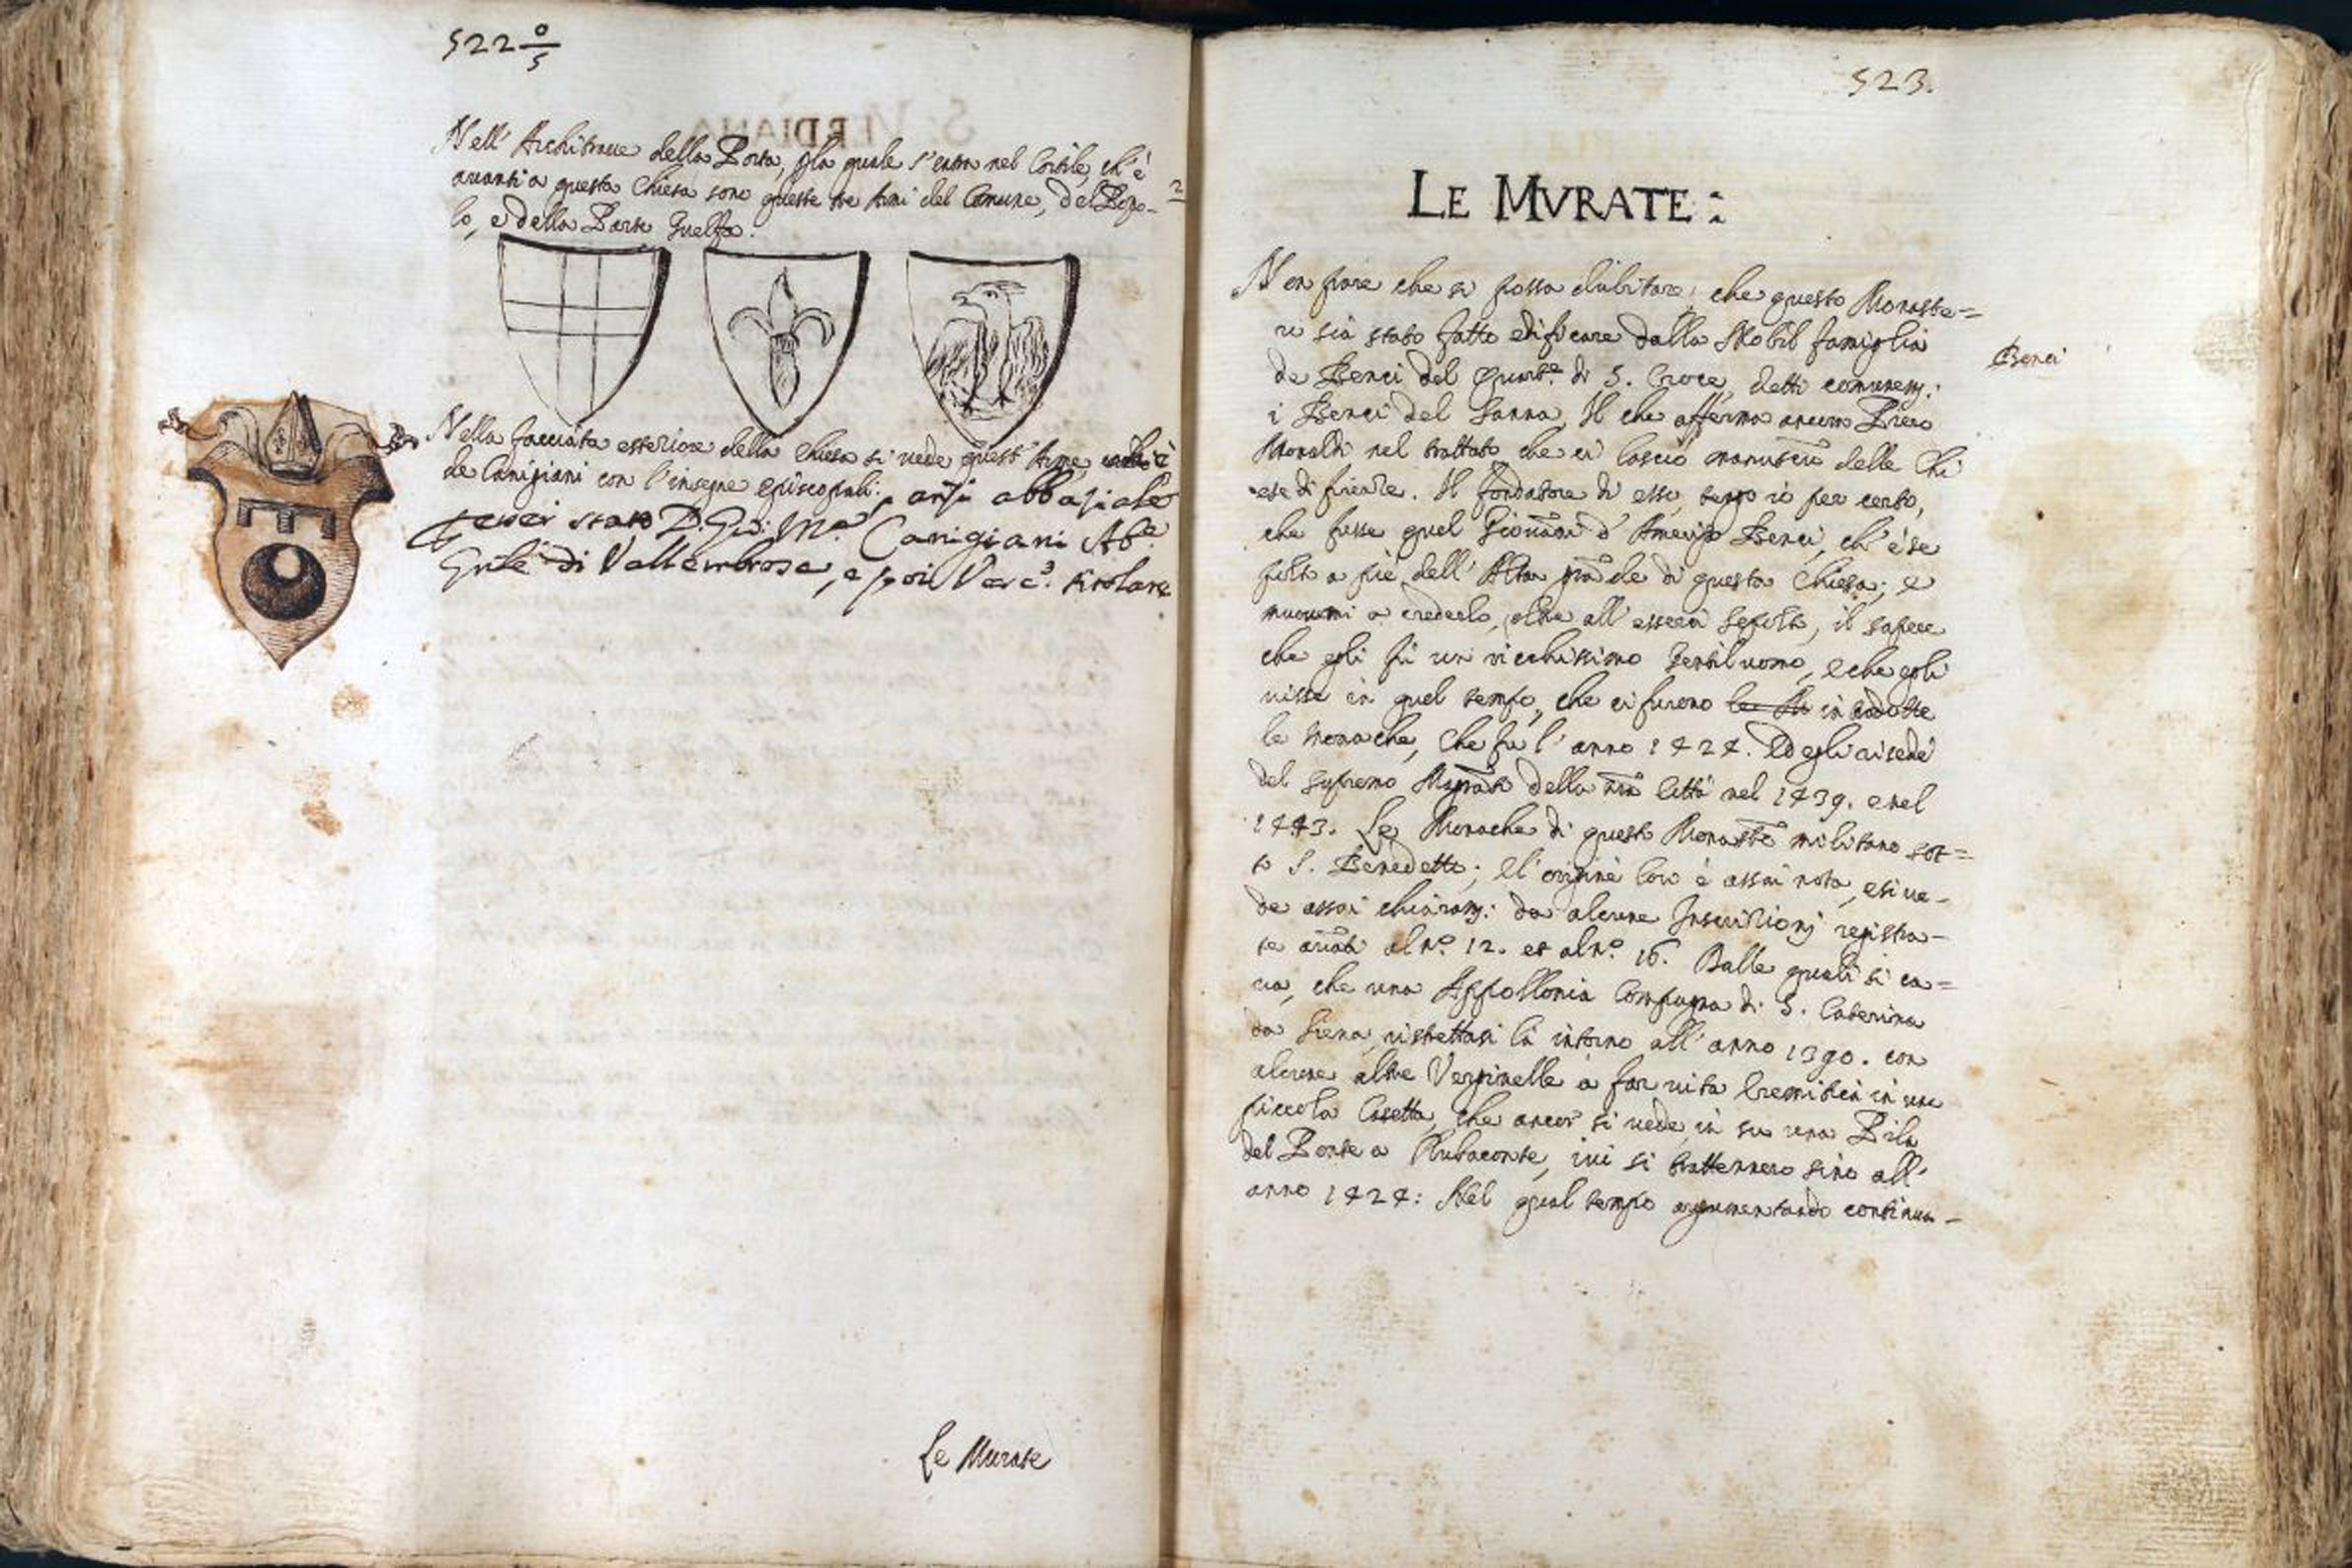 522 0/5
Nell' Architraue della Porta, p la quale s'entra nel Cortile, ch' è
auanti a questa Chiesa sono queste tre Armi del Comune, del Popo-
lo, e della Parte Guelfa.
2
Nella facciata esteriore della Chiesa si uede quest' Arme
de Canigiani con l'insegne episcopali. anzi abbaziale
stato D. Gio: Ma. Canigiani Abe.
Gnle di Vallembrosa, e poi Vesc. titolare
Le Murate
523.
LE MVRATE:
Non pare che si possa dubitare, che questo Monaste=
ri sia stato fatto edificare dalla Nobil famiglia
de Benci del Quart.e di S. Croce, detti comunem:
i Benci del Sanna, Il che afferma ancora Piero
Monaldi nel trattato che ci lasciò manuscrio delle Chi
ese di firenze. Il fondatore di esso, tengo io per certo,
che fusse quel Giouani d' Amerigo Benci, ch' è se
polto a piè dell' Altar grade di questa Chiesa; e
muouemi a crederlo, oltre all' esserui sepolto, il sapere
che egli fù un ricchissimo Gentiluomo, e che egli
uisse in quel tempo, che ci furono le Mo introdotte
le Monache, che fù l' anno 1424. Ed egli risedè
del supremo Magrato della nra Città nel 1439. e nel
1443. Le Monache di questo Monasteo militano sot=
to S. Benedetto; e l' origine loro è assai nota, e si ue-
de assai chiaram: da alcune Inscrizionj registra-
te auati al no. 12. et al no. 16. Dalle quali si ca=
ua, che una Appollonia Compagna di S. Caterina
da Siena, ristrettasi là intorno all' anno 1390. con
alcune altre Verginelle à far uita Eremitica in una
piccola Casetta, che ancor si uede in su una Pila
del Ponte a Rubaconte, iui si trattennero sino all'
anno 1424: Nel qual tempo argumentando continua-
Benci